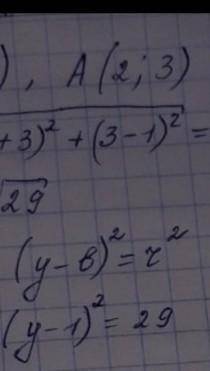 ), A(2; 3)
+3)² + (3-1)² =
√29
(y-b)² = r²
(y-1)² = 29